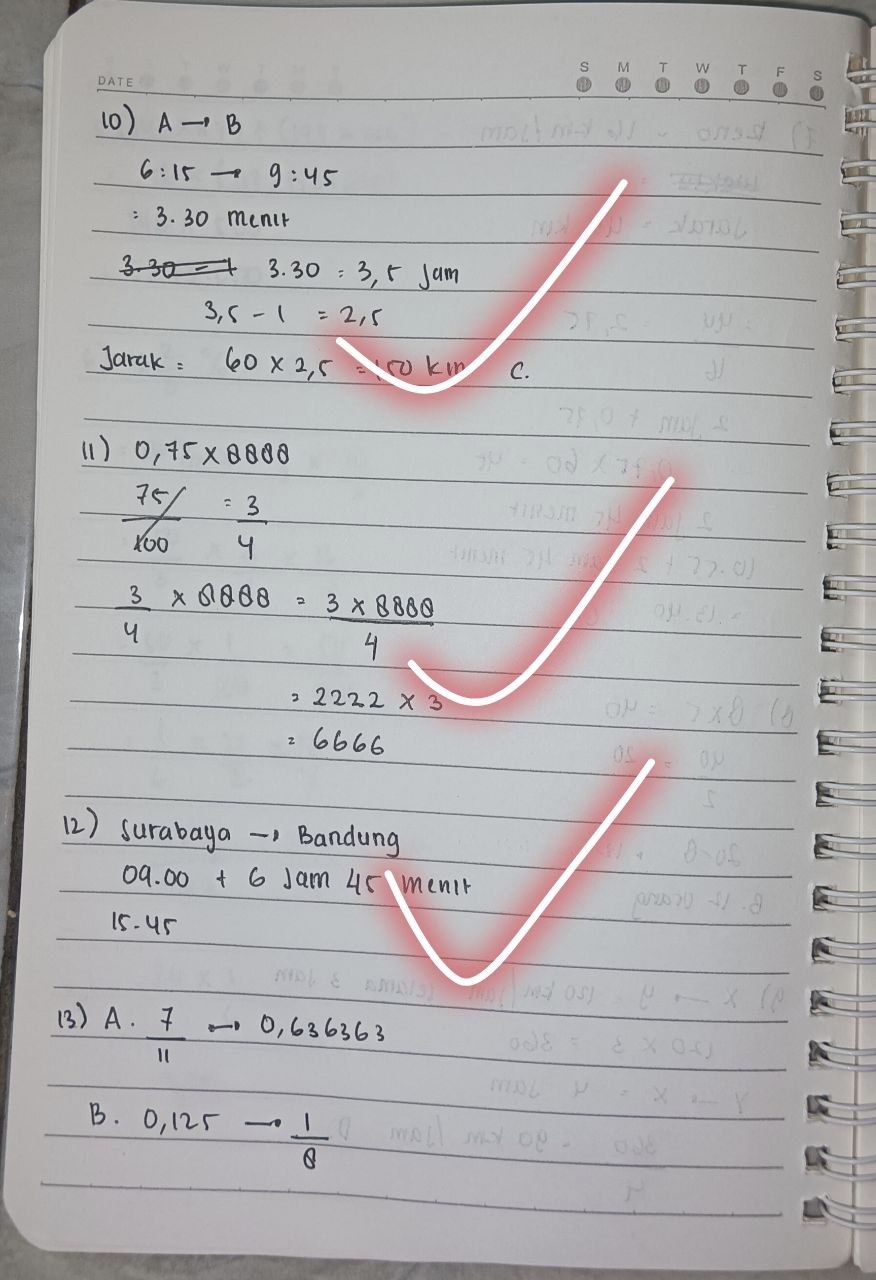 DATE
S M T W T F S
10) A → B
6:15 → 9:45
= 3.30 menit
3.30 = 3,5 Jam
3,5 - 1 = 2,5
Jarak = 60 x 2,5 = 150 km C.
11) 0,75 x 8888
75/100 = 3/4
3/4 x 8888 = 3 x 8888/4
= 2222 x 3
= 6666
12) Surabaya → Bandung
09.00 + 6 Jam 45 menit
15.45
13) A. 7/11 → 0,636363
B. 0,125 → 1/8